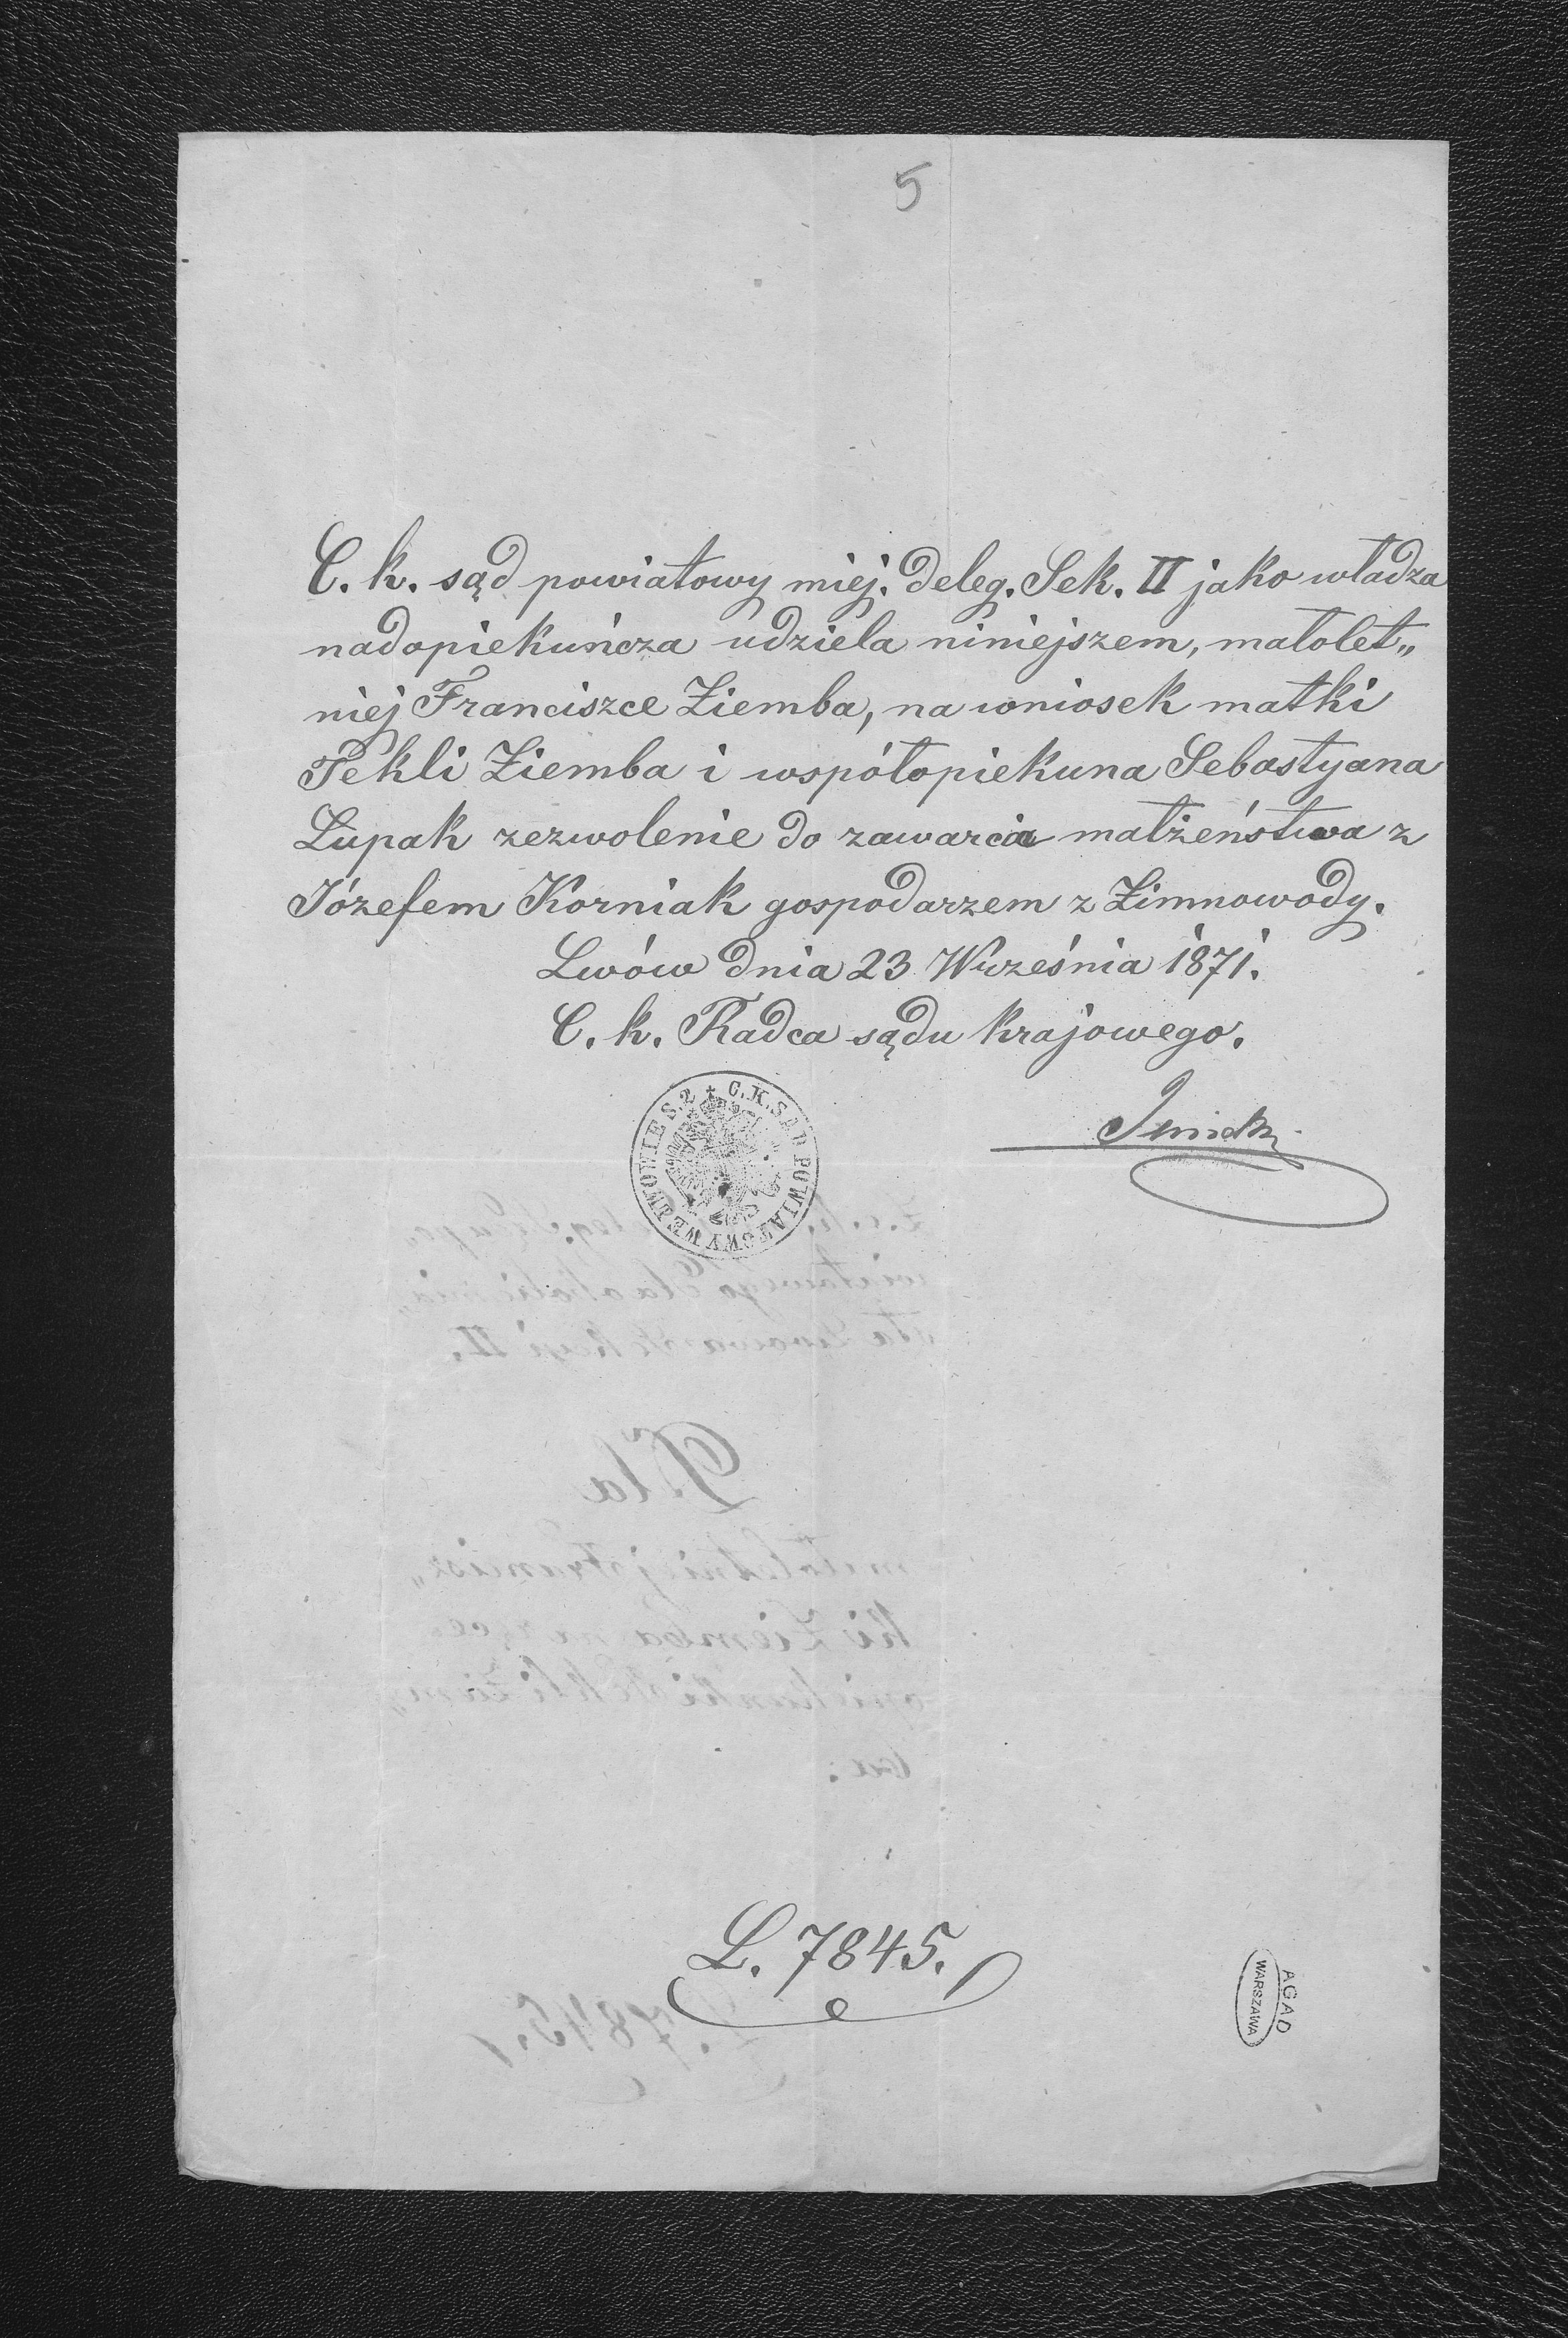 5
C. k. sąd powiatowy miej. deleg. Sek. II jako władza
nadopiekuńcza udziela niniejszem, małolet„
niej Franciszce Ziemba, na wniosek matki
Tekli Ziemba i współopiekuna Sebastyana
Łupak zezwolenie do zawarcia małżeństwa z
Józefem Korniak gospodarzem z Zimnowody.
Lwów dnia 23 Września 1871.
C. k. Radca sądu krajowego.
C.K. SĄD POWIATOWY WE LWOWIE S. 2
Dla
L. 7845.
L. 7845.
AGAD
WARSZAWA